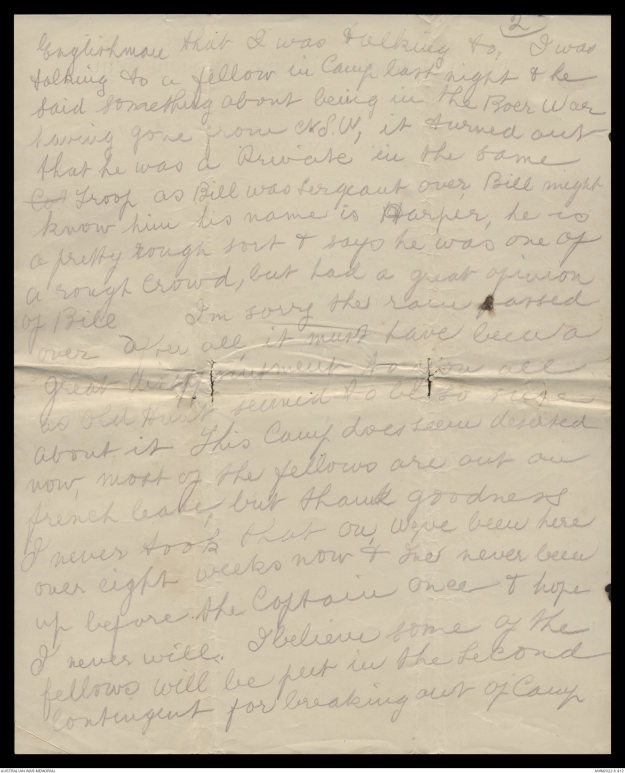 2
Englishman that I was talking to, I was
talking to a fellow in Camp last night & he
said something about being in the Boer War
having gone from N.S.W, it turned out
that he was a Private in the same
Co Troop as Bill was Sergeant over, Bill might
know him his name is Harper, he is
a pretty rough sort & says he was one of
a rough crowd, but had a great opinion
of Bill I'm sorry the rain passed
over you all it must have been a
great disappointment to you all
as Old Hunt seemed to be so sure
about it This Camp does seem deserted
now, most of the fellows are out on
french leave, but thank goodness
I never took that on, We've been here
over eight weeks now & I've never been
up before the Captain once & hope
I never will. I believe some of the
fellows will be put in the Second
Contingent for breaking out of Camp
AUSTRALIAN WAR MEMORIAL